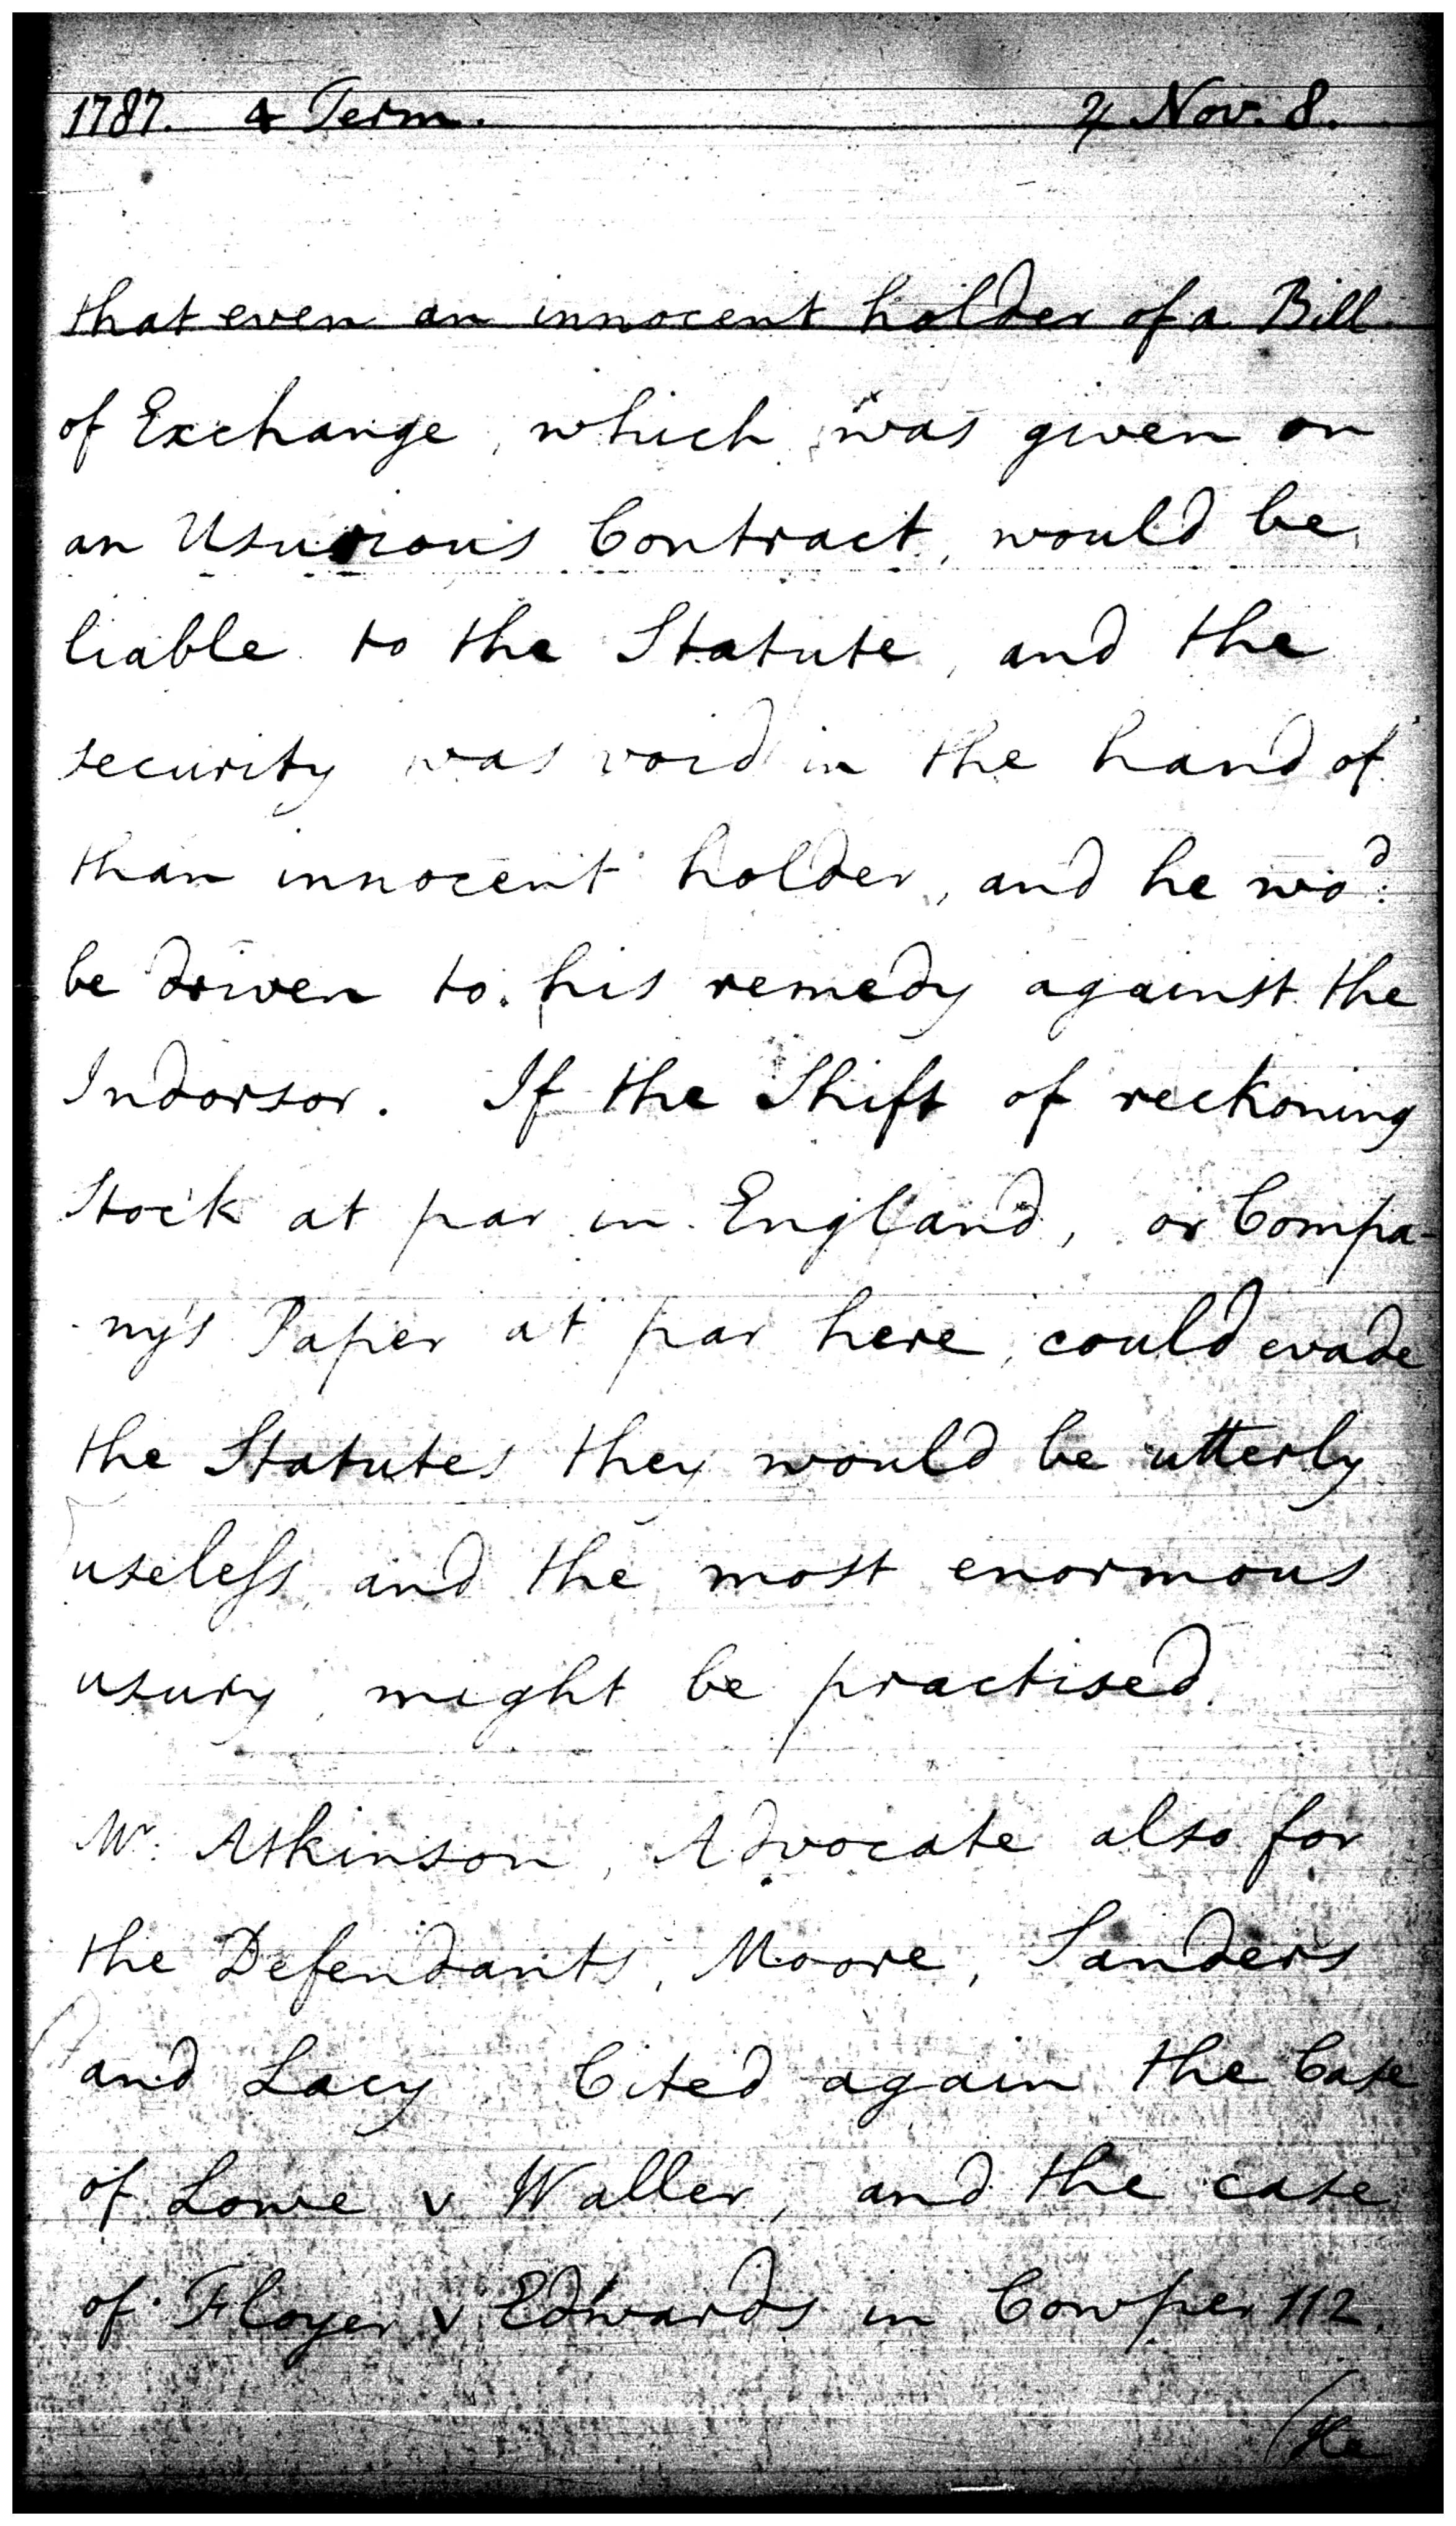 1787. 4 Term. ♃ Nov. 8.
that even an innocent holder of a Bill
of Exchange, which was given on
an Usurious Contract, would be
liable to the Statute, and the
security was void in the hand of
than innocent holder, and he wo.^d
be driven to his remedy against the
Indorsor. If the Shift of reckoning
Stock at par in England, or Compa-
ny's Paper at par here, could evade
the Statutes they would be utterly
useless, and the most enormous
usury might be practised.
M^r. Atkinson, Advocate also for
the Defendants, Moore, Sanders
and Lacy Cited again the Case
of Lowe v Waller, and the case
of Floyer v Edwards in Cowper 112.
(He